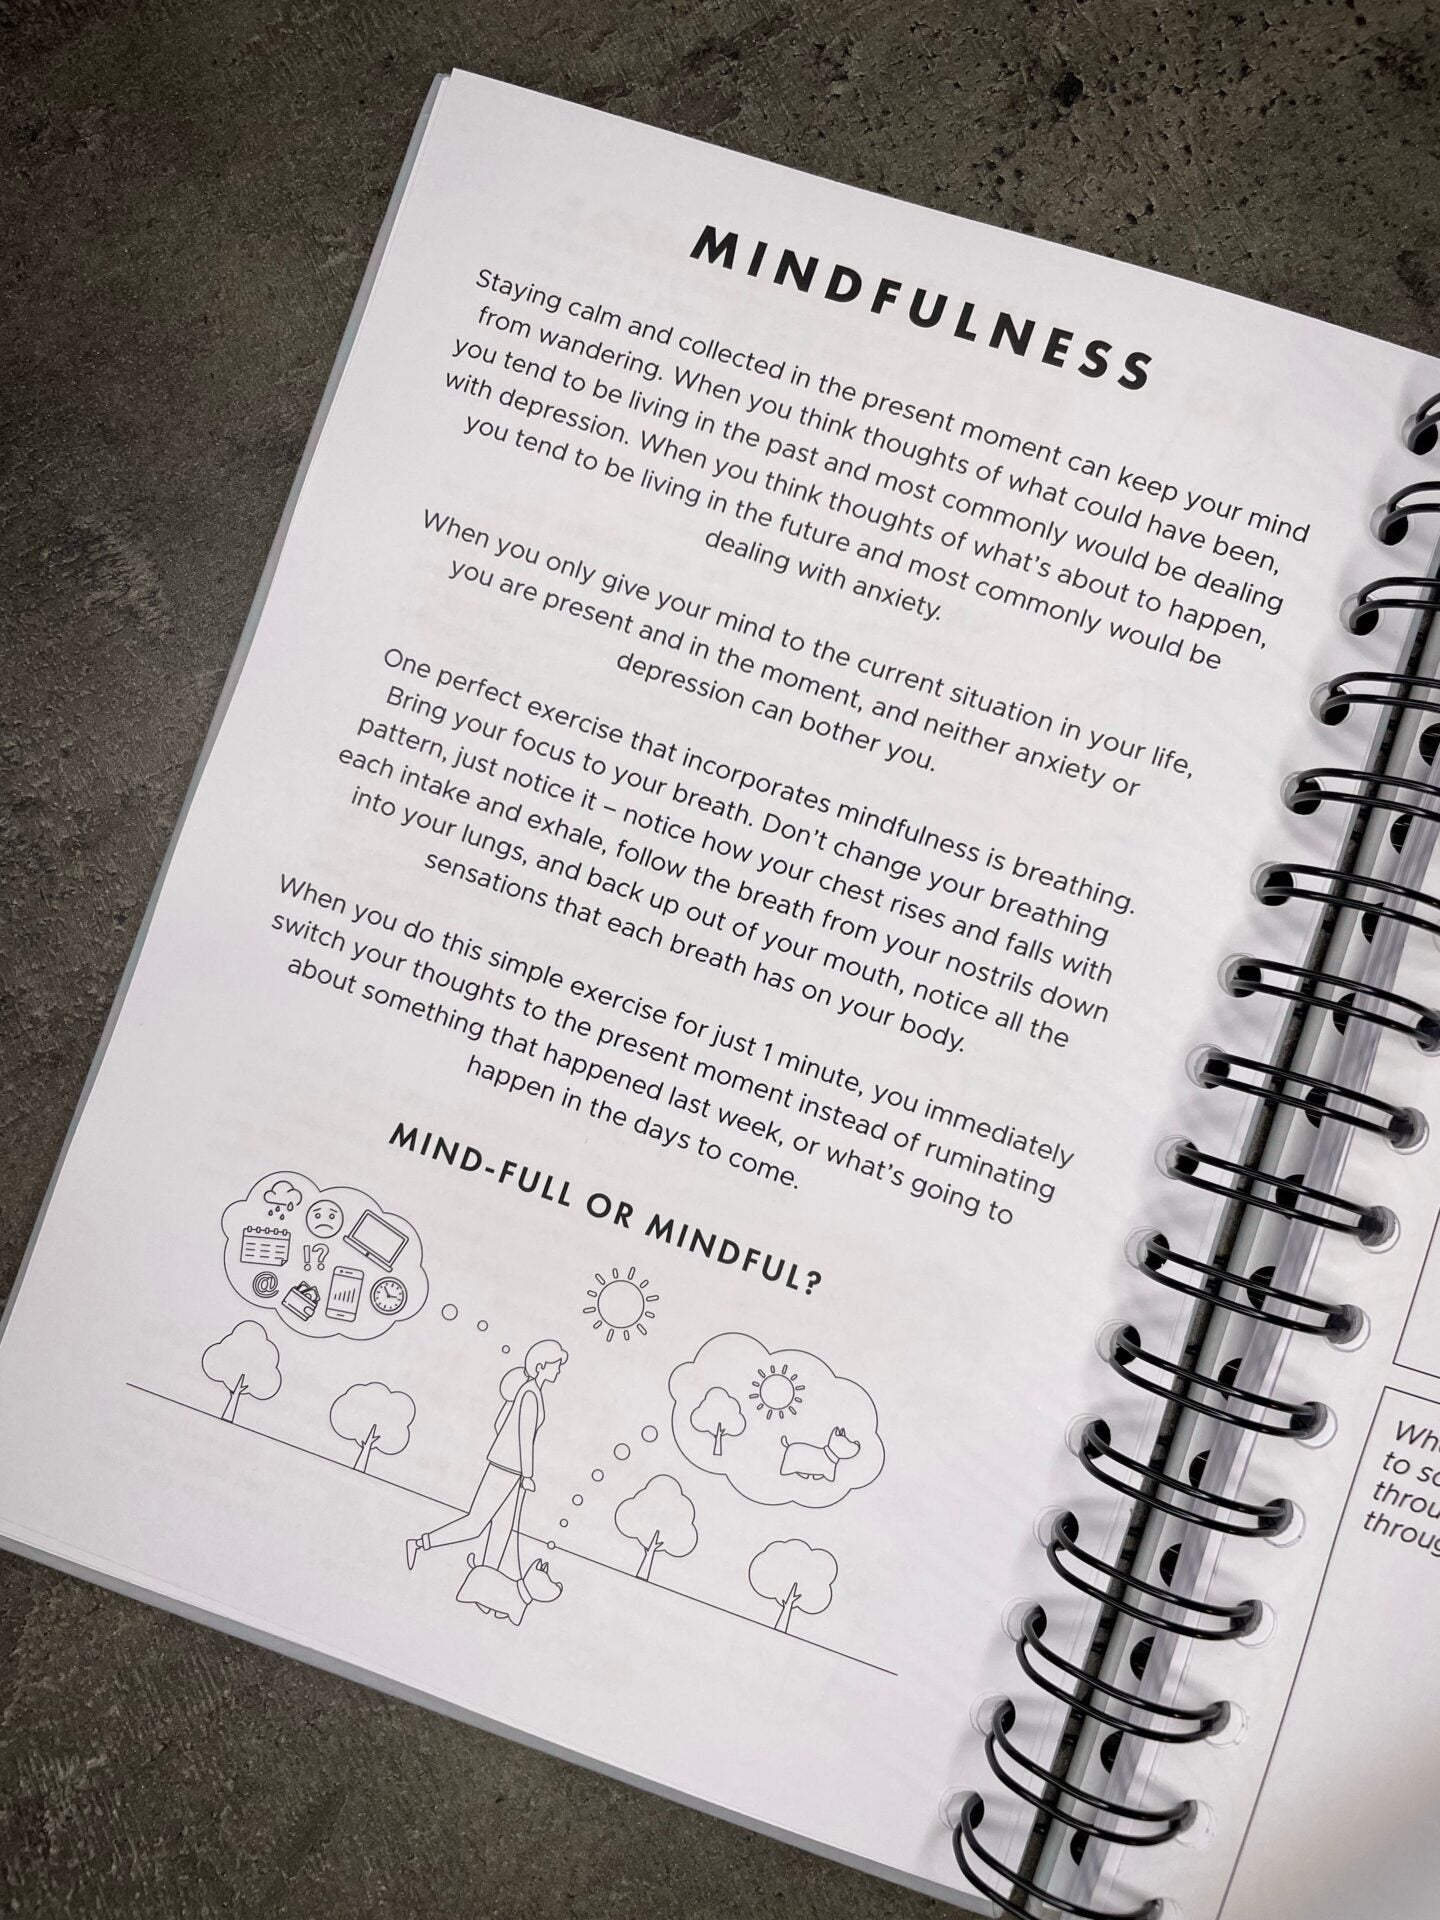 MINDFULNESS
Staying calm and collected in the present moment can keep your mind
from wandering. When you think thoughts of what could have been,
you tend to be living in the past and most commonly would be dealing
with depression. When you think thoughts of what's about to happen,
you tend to be living in the future and most commonly would be
dealing with anxiety.
When you only give your mind to the current situation in your life,
you are present and in the moment, and neither anxiety or
depression can bother you.
One perfect exercise that incorporates mindfulness is breathing.
Bring your focus to your breath. Don't change your breathing
pattern, just notice it – notice how your chest rises and falls with
each intake and exhale, follow the breath from your nostrils down
into your lungs, and back up out of your mouth, notice all the
sensations that each breath has on your body.
When you do this simple exercise for just 1 minute, you immediately
switch your thoughts to the present moment instead of ruminating
about something that happened last week, or what's going to
happen in the days to come.
MIND-FULL OR MINDFUL?
!?
@
to